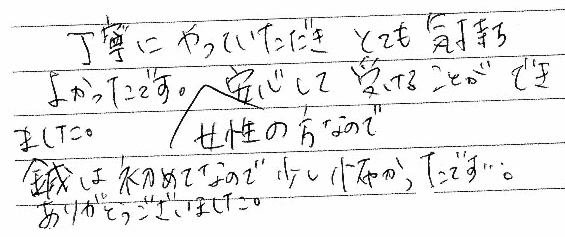 丁寧にやっていただきとても気持ち
よかったです。安心して受けることができ
ました。 女性の方なので
鍼は初めてなので少し怖かったです…。
ありがとうございました。